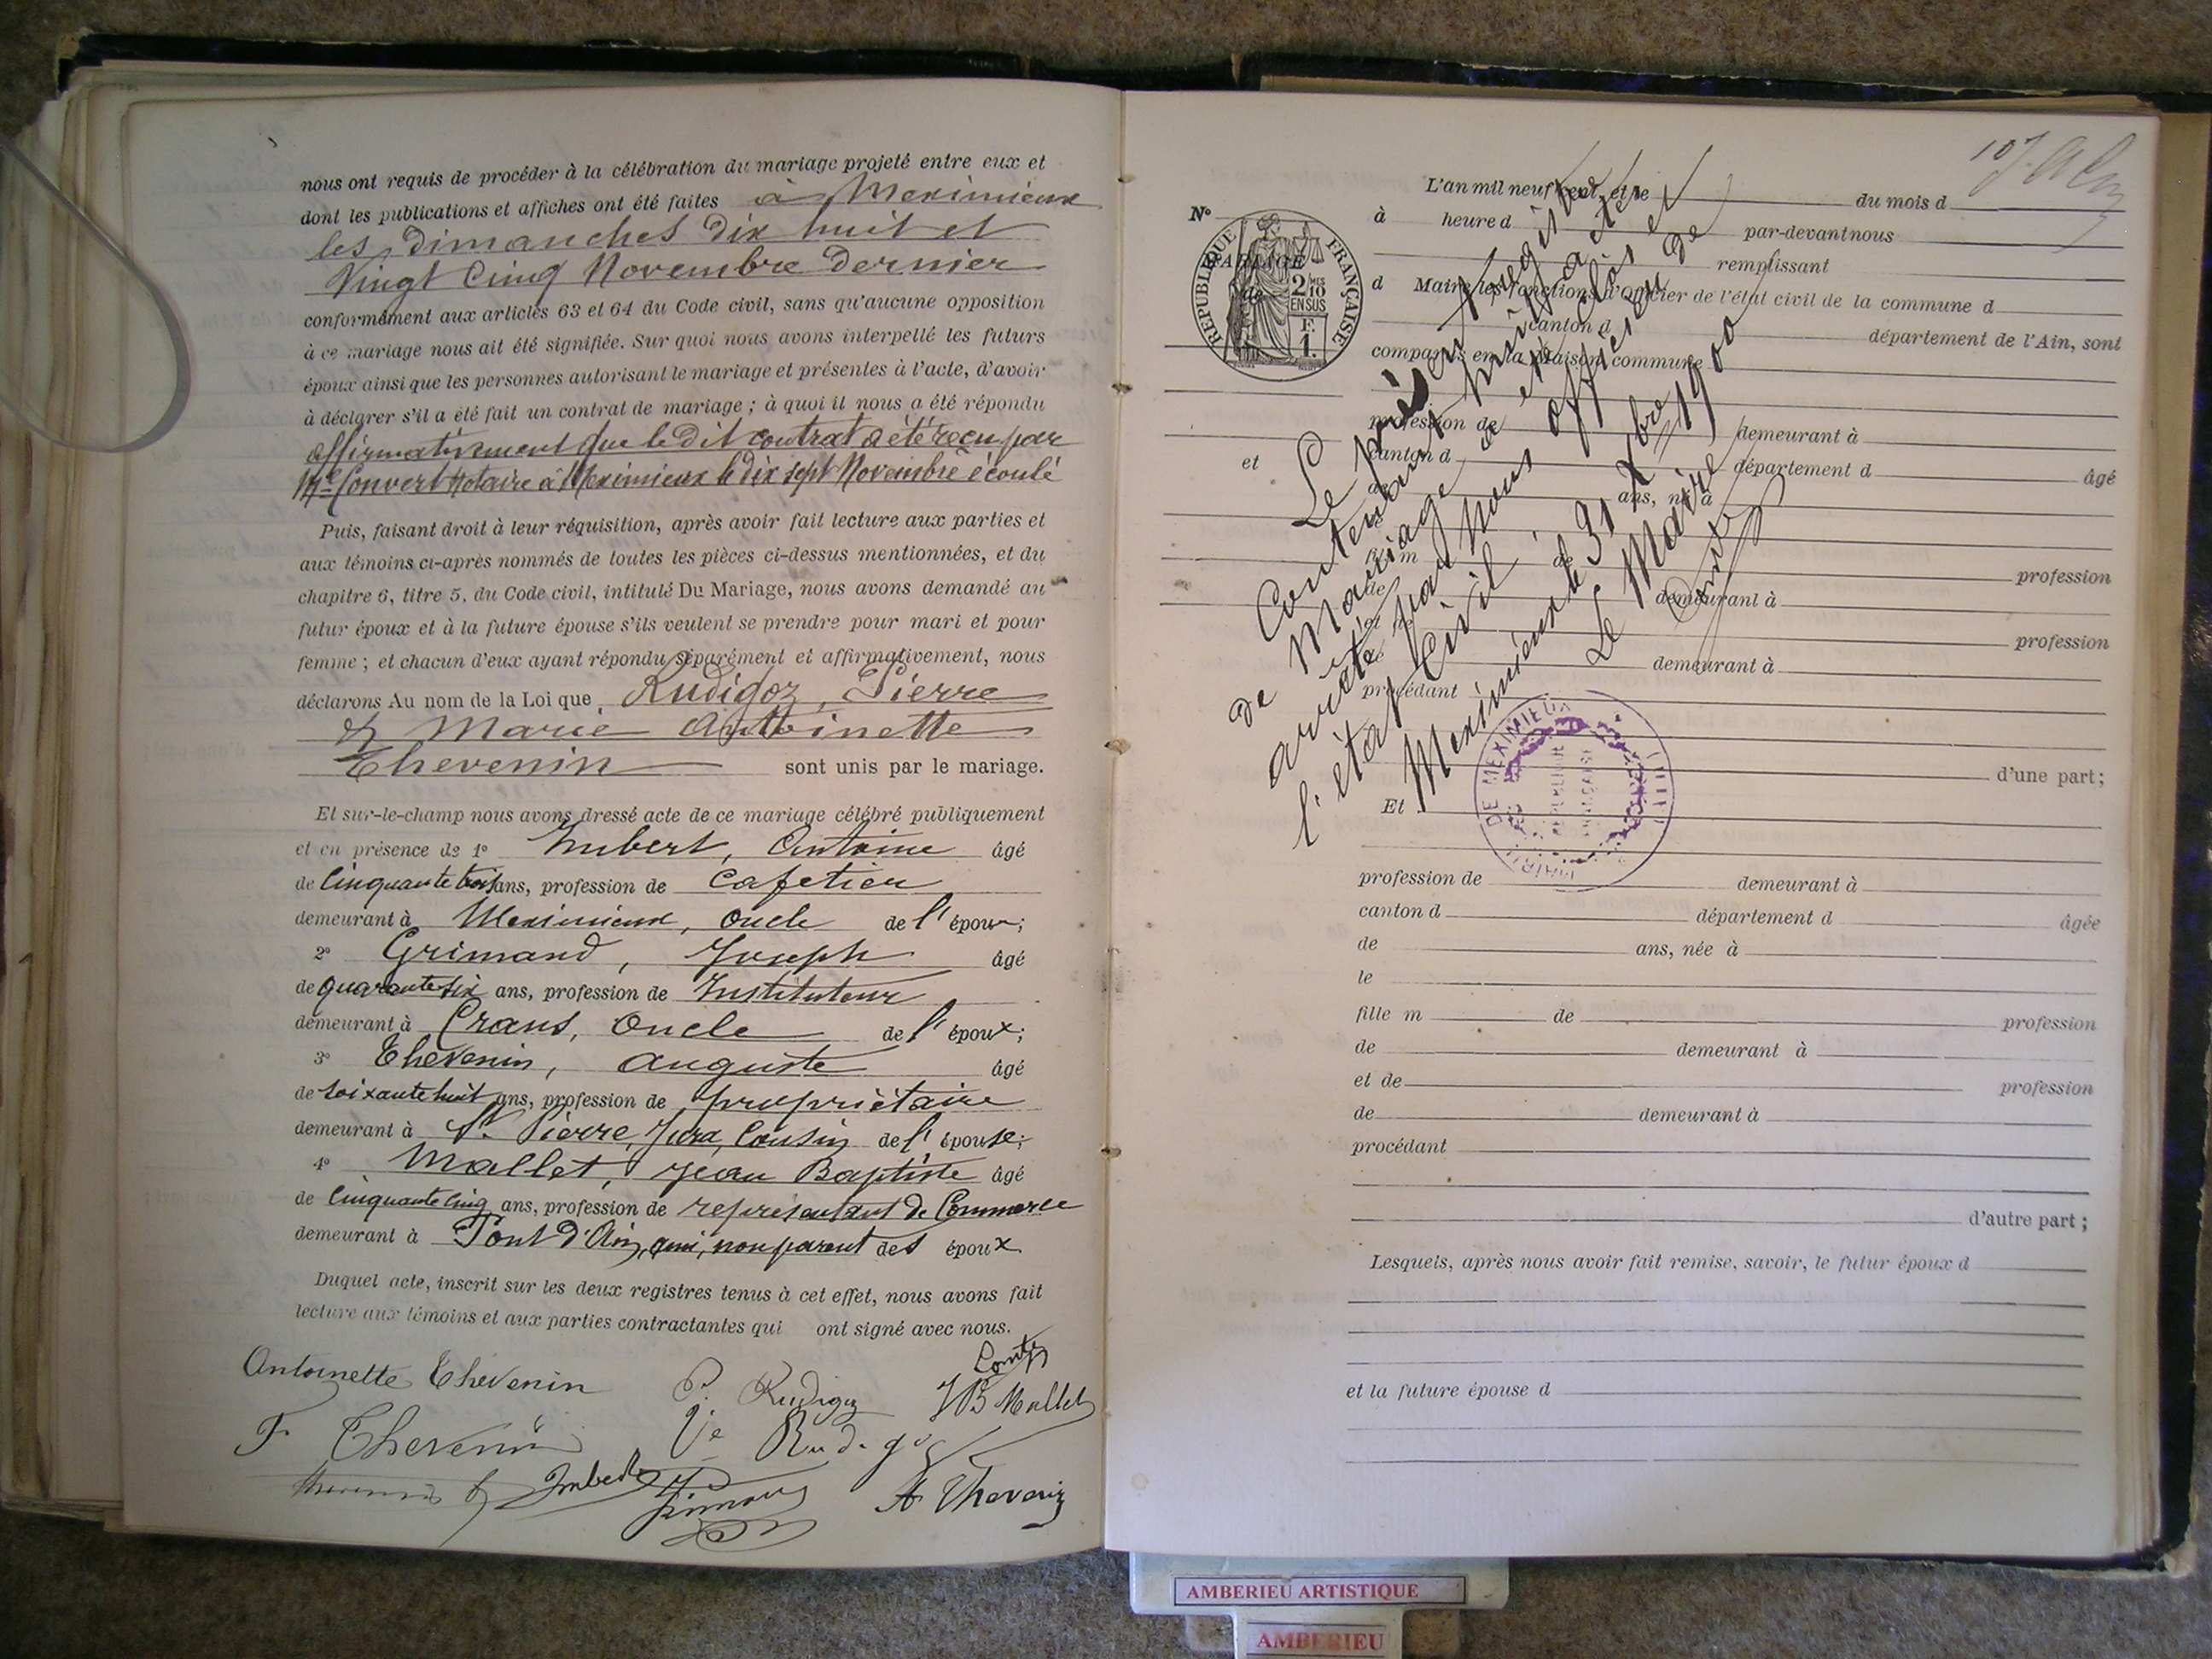 nous ont requis de procéder à la célébration du mariage projeté entre eux et
dont les publications et affiches ont été faites à Meximieux
les Dimanches Dix huit et
Vingt Cinq Novembre Dernier
conformément aux articles 63 et 64 du Code civil, sans qu'aucune opposition
à ce mariage nous ait été signifiée. Sur quoi nous avons interpellé les futurs
époux ainsi que les personnes autorisant le mariage et présentes à l'acte, d'avoir
à déclarer s'il a été fait un contrat de mariage ; à quoi il nous a été répondu
affirmativement que le dit contrat a été reçu par
Me Convert Notaire à Meximieux le Dix sept Novembre écoulé
Puis, faisant droit à leur réquisition, après avoir fait lecture aux parties et
aux témoins ci-après nommés de toutes les pièces ci-dessus mentionnées, et du
chapitre 6, titre 5, du Code civil, intitulé Du Mariage, nous avons demandé au
futur époux et à la future épouse s'ils veulent se prendre pour mari et pour
femme ; et chacun d'eux ayant répondu séparément et affirmativement, nous
déclarons Au nom de la Loi que Rudigoz, Pierre
& Marie Antoinette
Thevenin sont unis par le mariage.
Et sur-le-champ nous avons dressé acte de ce mariage célébré publiquement
et en présence de 1° Imbert, Antoine âgé
de Cinquante trois ans, profession de Cafetier
demeurant à Meximieux, Oncle de l'époux;
2° Grimand, Joseph âgé
de quarante six ans, profession de Instituteur
demeurant à Crans, Oncle de l'époux;
3° Thevenin, Auguste âgé
de soixante huit ans, profession de propriétaire
demeurant à St Pierre, Jura, Cousin de l'épouse;
4° Mallet, Jean Baptiste âgé
de Cinquante Cinq ans, profession de représentant de Commerce
demeurant à Pont d'Ain, ami, non parent des époux
Duquel acte, inscrit sur les deux registres tenus à cet effet, nous avons fait
lecture aux témoins et aux parties contractantes qui ont signé avec nous.
Antoinette Thevenin P. Rudigoz JB Mallet
F Thevenin Ve Rudigoz
Imbert A Thevenin
N°
MARIAGE
de
et
RÉPUBLIQUE FRANÇAISE
2/10 EN SUS
F. 1.
L'an mil neuf cent, et le du mois d
à heure d par-devant nous
remplissant
d Maire les fonctions d'officier de l'état civil de la commune d
canton d département de l'Ain, sont
comparus en la Maison commune
profession de demeurant à
canton d département d âgé
de ans, né à
le
fils m de profession
de demeurant à
et de profession
de demeurant à
procédant
d'une part;
Et
profession de demeurant à
canton d département d âgée
de ans, née à
le
fille m de profession
de demeurant à
et de profession
de demeurant à
procédant
d'autre part ;
Lesquels, après nous avoir fait remise, savoir, le futur époux d
et la future épouse d
Le présent registre
Contenant
de Mariage a été clos et
arrêté par nous officier de
l'état Civil
Meximieux le 31 Xbre 1900
Le Maire
DE MEXIMIEUX
AMBERIEU ARTISTIQUE
AMBERIEU